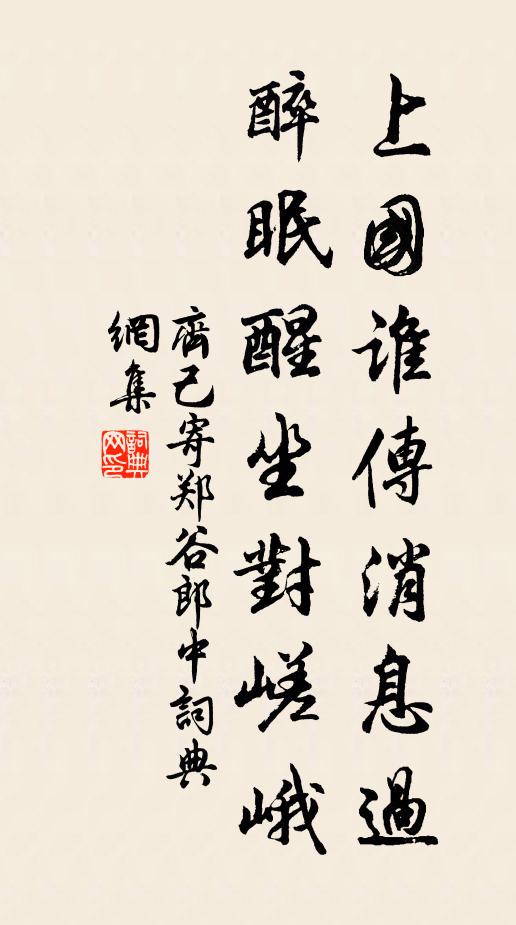 上國誰傳消息過
醉眠醒坐對嵯峨
齊己寄郑谷郎中詞典
網集
詞典
网印